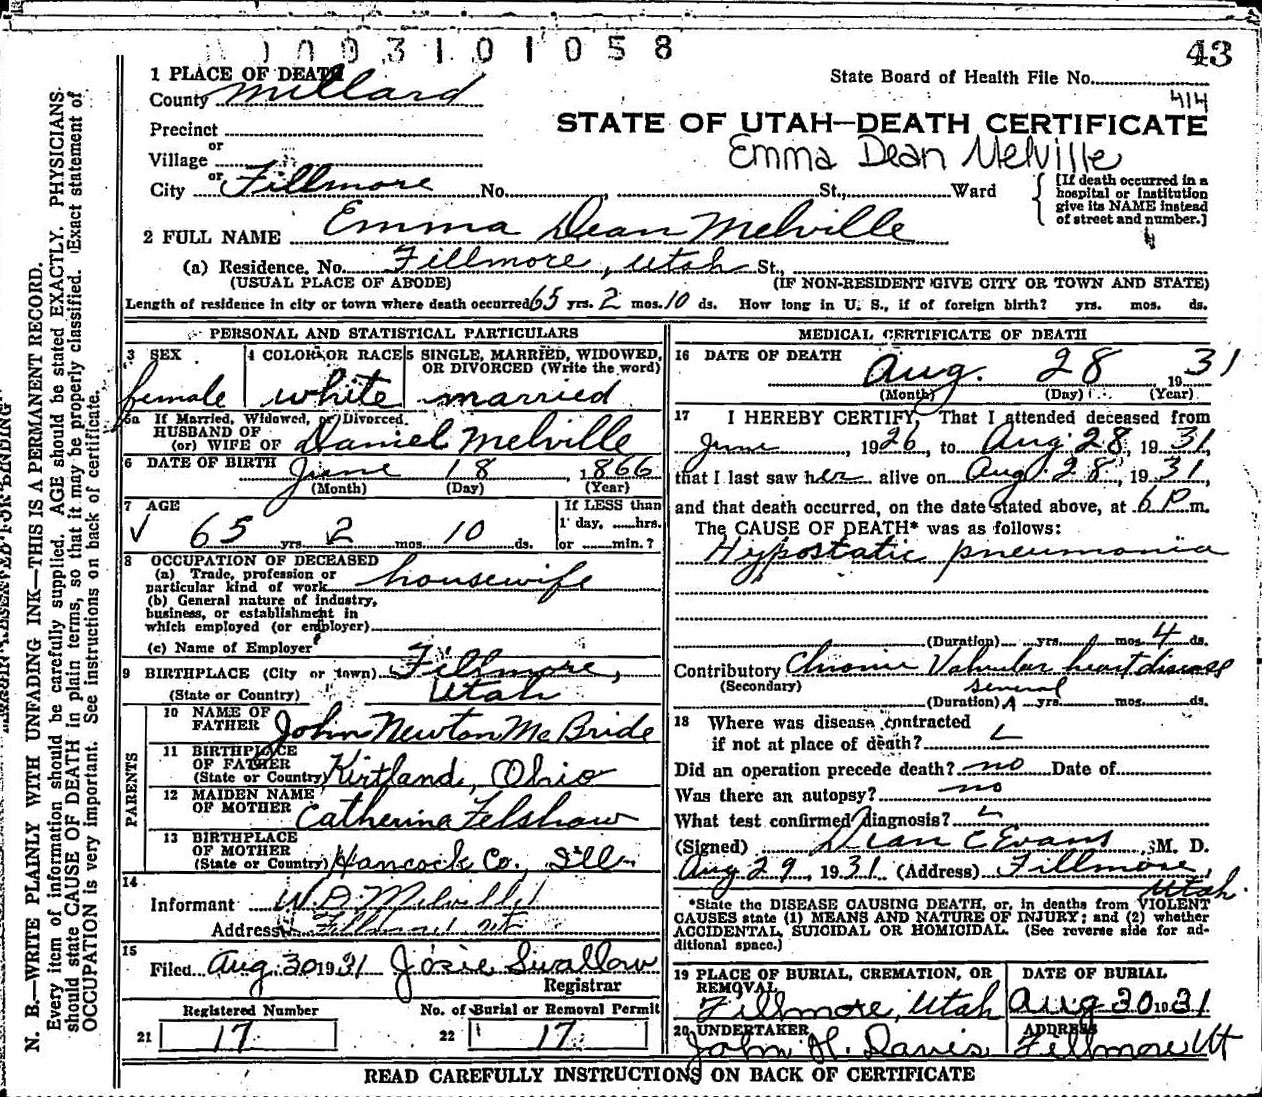 1 0 0 3 1 0 1 0 5 8
43
1 PLACE OF DEATH
State Board of Health File No.
County Millard
414
Precinct
STATE OF UTAH—DEATH CERTIFICATE
or
Village
Emma Dean Melville
or
City Fillmore No. , St., Ward
[If death occurred in a hospital or institution give its NAME instead of street and number.]
2 FULL NAME Emma Dean Melville
(a) Residence. No. Fillmore, Utah St.,
(USUAL PLACE OF ABODE) (IF NON-RESIDENT GIVE CITY OR TOWN AND STATE)
Length of residence in city or town where death occurred 65 yrs. 2 mos. 10 ds. How long in U. S., if of foreign birth? yrs. mos. ds.
PERSONAL AND STATISTICAL PARTICULARS
3 SEX
female
4 COLOR OR RACE
white
5 SINGLE, MARRIED, WIDOWED, OR DIVORCED (Write the word)
married
5a If Married, Widowed, or Divorced.
HUSBAND OF
(or) WIFE OF Daniel Melville
6 DATE OF BIRTH June 18, 1866
(Month) (Day) (Year)
7 AGE
65 yrs. 2 mos. 10 ds.
If LESS than
1 day, hrs.
or min.?
8 OCCUPATION OF DECEASED
(a) Trade, profession or
particular kind of work housewife
(b) General nature of industry,
business, or establishment in
which employed (or employer)
(c) Name of Employer
9 BIRTHPLACE (City or town) Fillmore,
(State or Country) Utah
PARENTS
10 NAME OF
FATHER John Newton McBride
11 BIRTHPLACE
OF FATHER
(State or Country) Kirtland, Ohio
12 MAIDEN NAME
OF MOTHER Catherina Felshaw
13 BIRTHPLACE
OF MOTHER
(State or Country) Hancock Co, Ill
14
Informant W.D. Melville
Address Fillmore Ut
15
Filed Aug. 30 1931 Josie Swallow
Registrar
Registered Number No. of Burial or Removal Permit
21 17 22 17
MEDICAL CERTIFICATE OF DEATH
16 DATE OF DEATH
Aug. 28 1931
(Month) (Day) (Year)
17 I HEREBY CERTIFY, That I attended deceased from
June, 1926, to Aug. 28, 1931,
that I last saw her alive on Aug. 28, 1931,
and that death occurred, on the date stated above, at 6 P m.
The CAUSE OF DEATH* was as follows:
Hypostatic pneumonia
(Duration) yrs. mos. 4 ds.
Contributory Chronic Valvular heart disease
(Secondary) several
(Duration) yrs. mos. ds.
18 Where was disease contracted
if not at place of death?
Did an operation precede death? no Date of
Was there an autopsy? no
What test confirmed diagnosis?
(Signed) Dean C Evans, M. D.
Aug 29, 1931. (Address) Fillmore,
Utah.
*State the DISEASE CAUSING DEATH, or, in deaths from VIOLENT
CAUSES state (1) MEANS AND NATURE OF INJURY; and (2) whether
ACCIDENTAL, SUICIDAL OR HOMICIDAL. (See reverse side for ad-
ditional space.)
19 PLACE OF BURIAL, CREMATION, OR
REMOVAL
Fillmore, Utah
DATE OF BURIAL
Aug 30 1931
20 UNDERTAKER
John H. Davis
ADDRESS
Fillmore Ut
READ CAREFULLY INSTRUCTIONS ON BACK OF CERTIFICATE
N. B.—WRITE PLAINLY WITH UNFADING INK—THIS IS A PERMANENT RECORD.
Every item of information should be carefully supplied. AGE should be stated EXACTLY. PHYSICIANS
should state CAUSE OF DEATH in plain terms, so that it may be properly classified. Exact statement of
OCCUPATION is very important. See instructions on back of certificate.